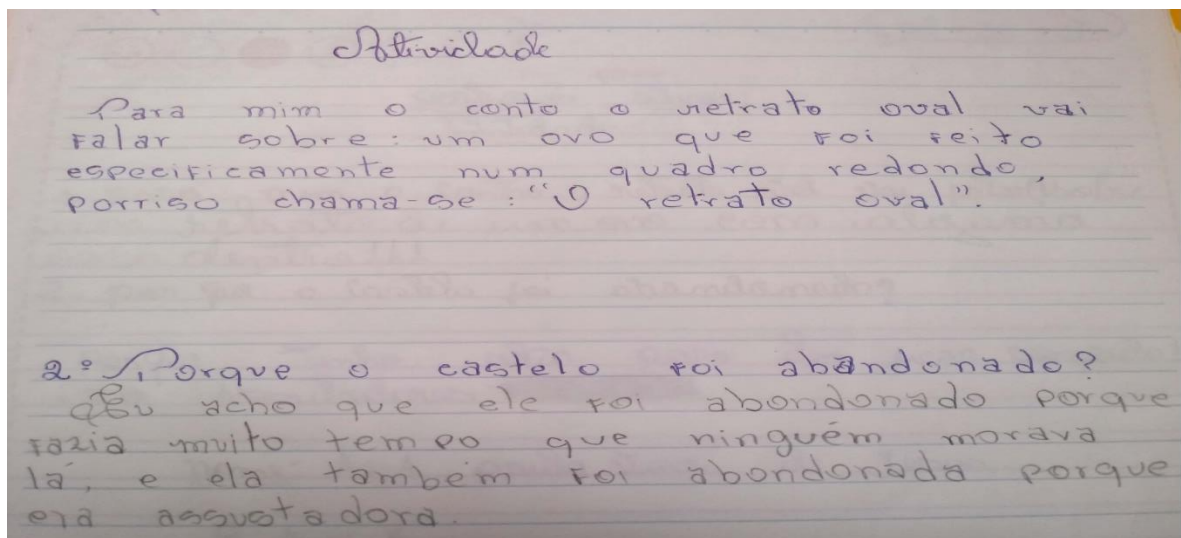 Atividade
Para mim o conto o retrato oval vai
falar sobre: um ovo que foi feito
especificamente num quadro redondo,
porriso chama-se: "O retrato oval".
2º Porque o castelo foi abandonado?
Eu acho que ele foi abondonado porque
fazia muito tempo que ninguém morava
lá, e ela também foi abondonada porque
era assustadora.